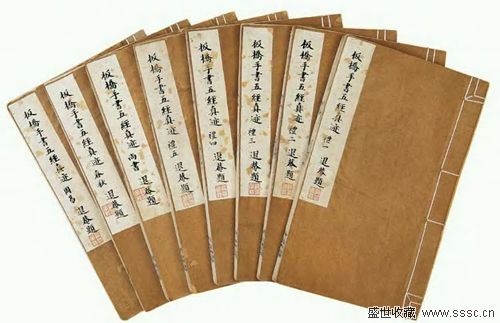 板橋手書五經真迹 周易 退庵題
板橋手書五經真迹 春秋 退庵題
板橋手書五經真迹 尚書 退庵題
板橋手書五經真迹 禮五 退庵題
板橋手書五經真迹 禮四 退庵題
板橋手書五經真迹 禮三 退庵題
板橋手書五經真迹 禮二 退庵題
板橋手書五經真迹 禮一 退庵題
盛世收藏 www.sssc.cn